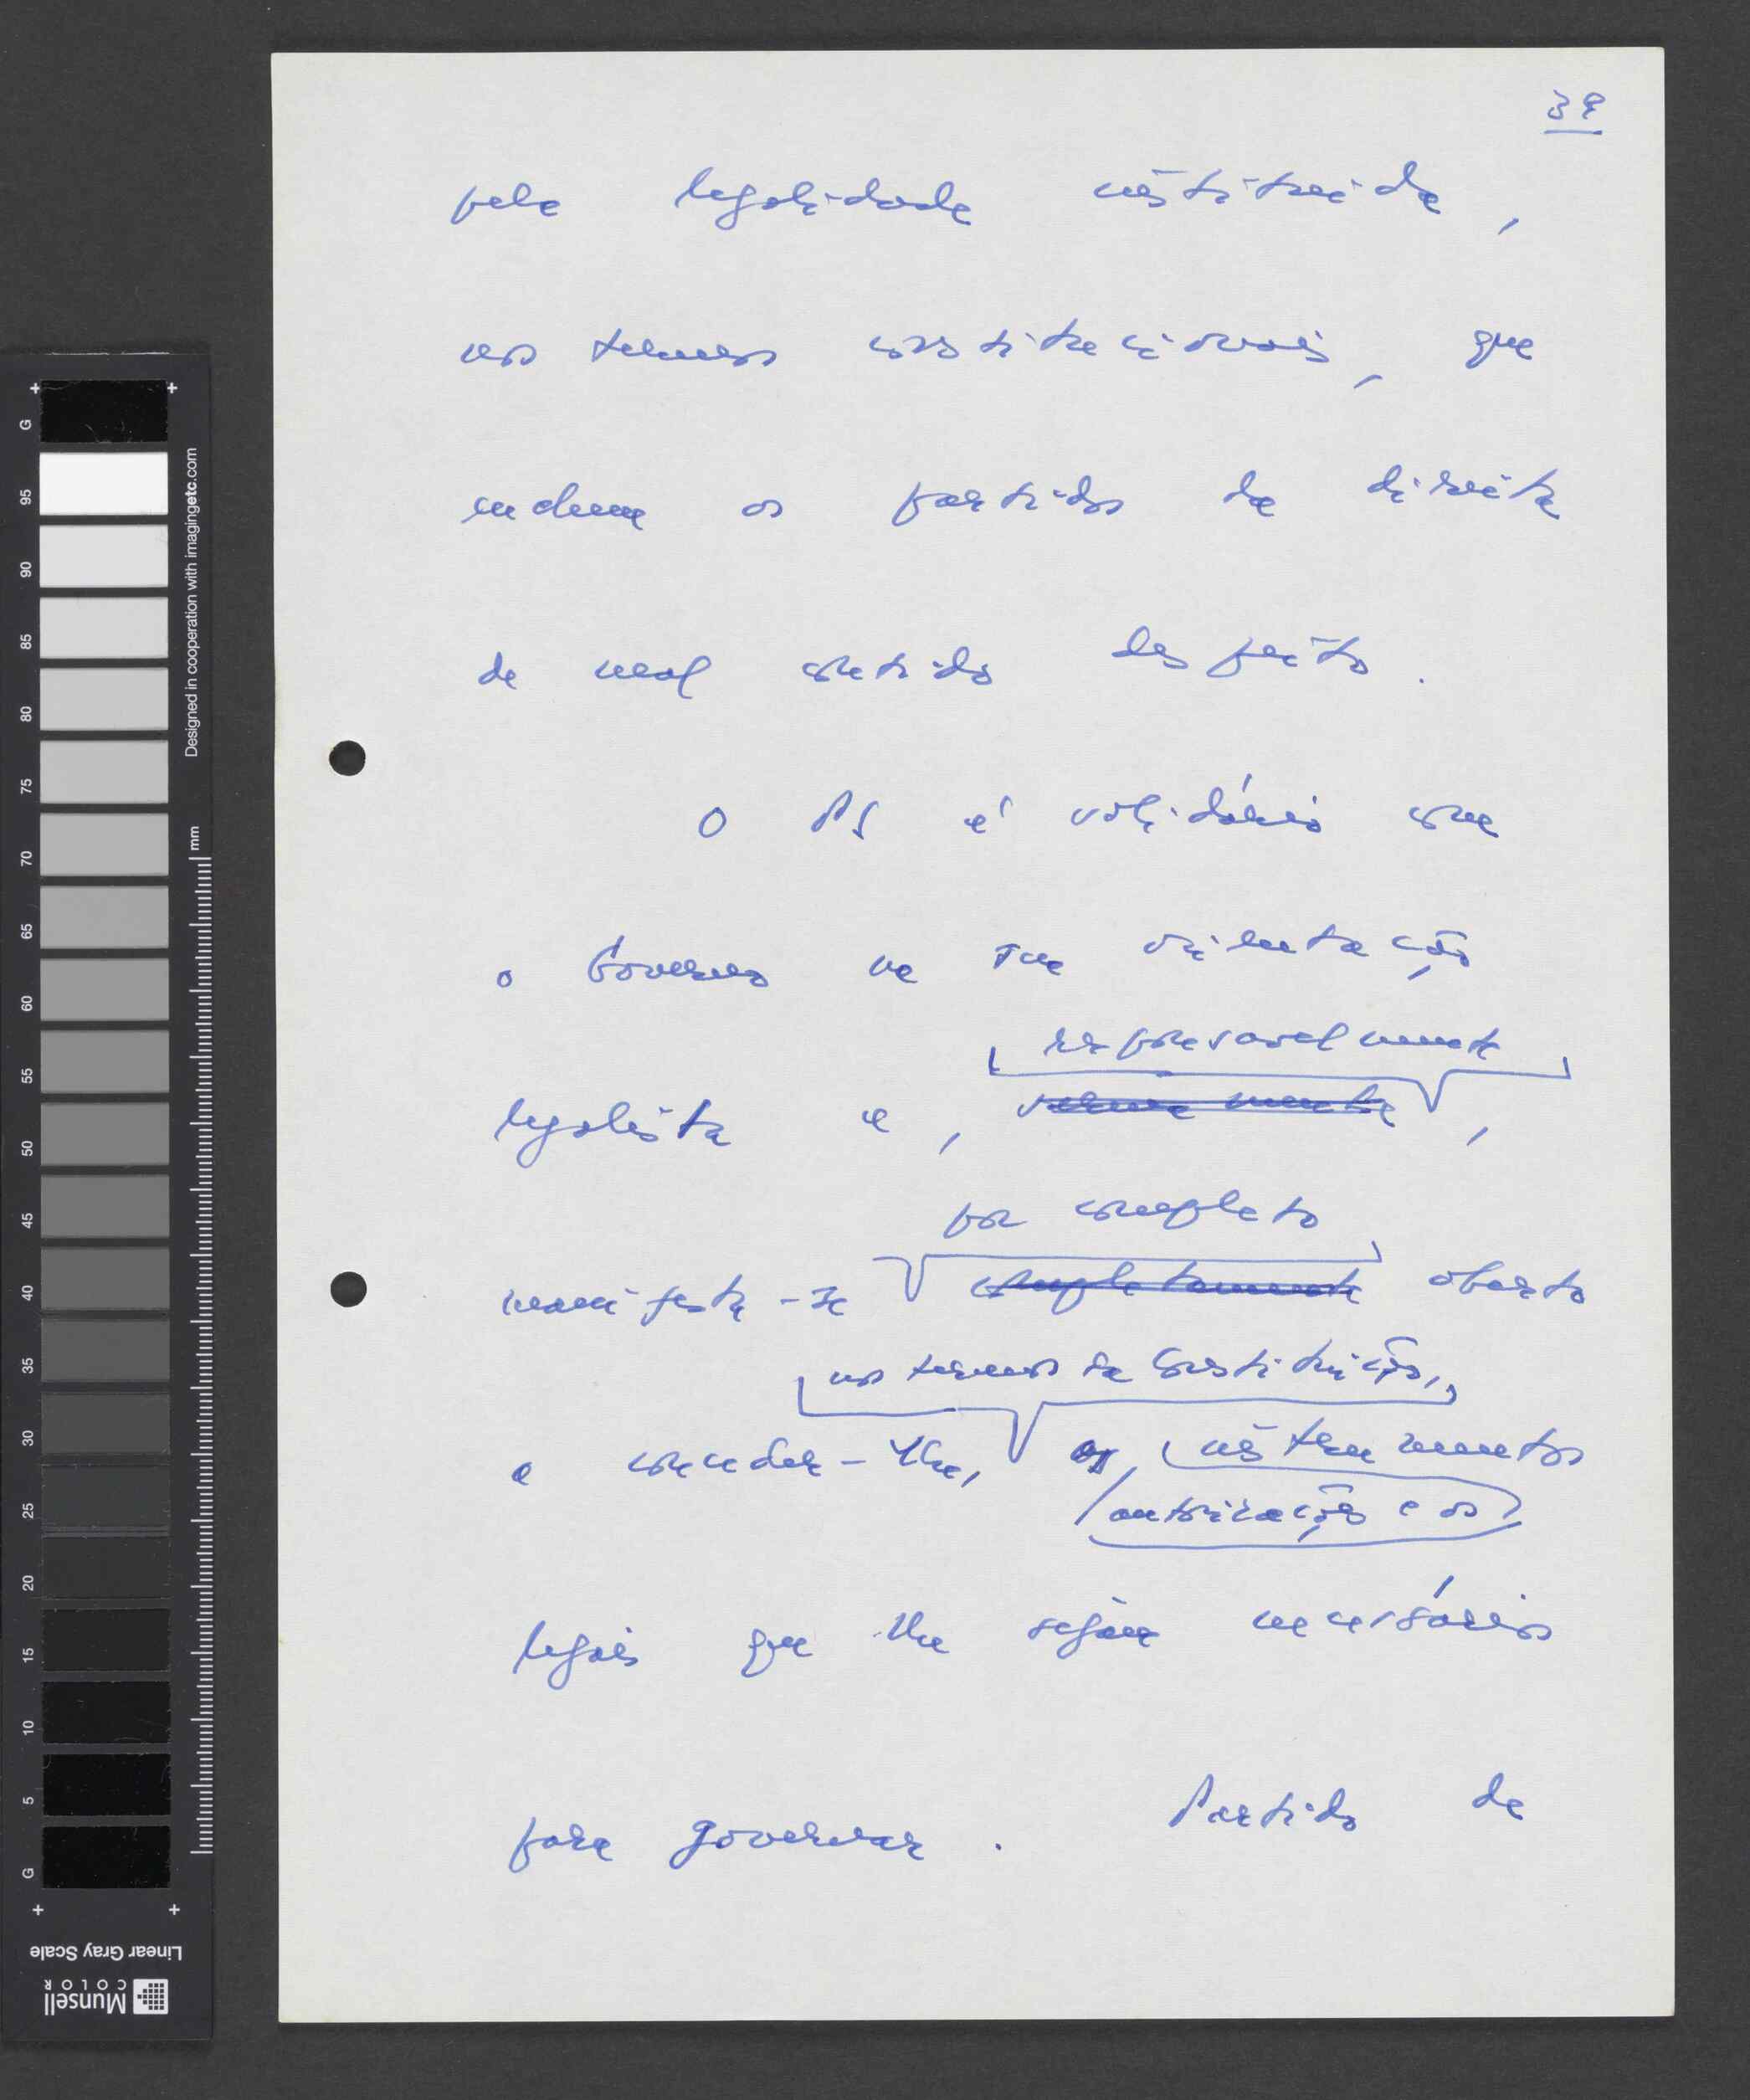 39
pela legalidade instituída,
nos termos constitucionais, que
enchem os partidos da direita
de mal contido despeito.
O PS é solidário com
o Governo na sua orientação
responsavelmente
legalista e, serenamente,
por completo
manifesta-se completamente aberto
nos termos da Constituição,
a conceder-lhe, as instrumentos
autorizações e os
legais que lhe sejam necessários
para governar. Partido de
G
95
90
85
80
75
70
65
60
55
50
45
40
35
30
25
20
15
10
5
G
Designed in cooperation with imagingetc.com
mm
Linear Gray Scale
Munsell
COLOR